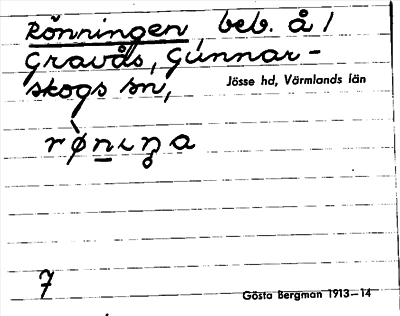 Rönningen, beb. å /
Gravås, Gunnar-
skogs sn,
Jösse hd, Värmlands län
7
Gösta Bergman 1913–14